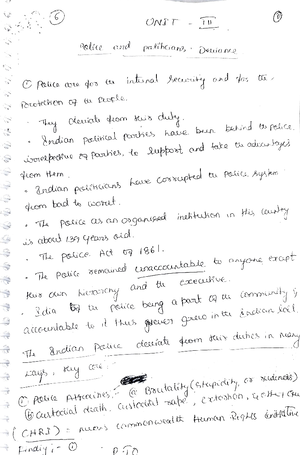 6
UNIT - III
Police and politicians - Deviance
Police are for the internal security and for the
Protection of the People.
They deviate from this duty.
Indian political parties have been behind the police
irrespective of parties, to support and take the advantages
from them.
Indian politicians have corrupted the police system
from bad to worst.
The police as an organised institution in this country
is about 139 years old.
The Police Act of 1861.
The police remained unaccountable to anyone except
their own hierarchy and the executive.
Idea of the police being a part of the community &
accountable to it thus never grew in the Indian soil.
The Indian Police deviate from their duties in many
ways, they are.
Police Atrocities:- (a) Brutality (stupidity, or rudeness)
(b) Custodial death, custodial rape, extortion, & other
(CHRI) = Commonwealth Human Rights Initiative
P.T.O